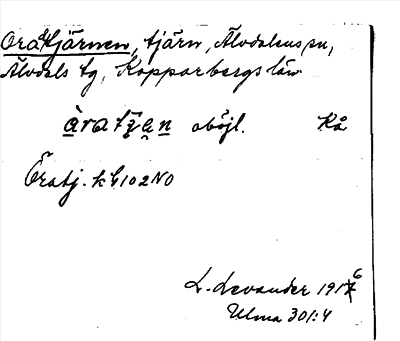 Oratjärnen, tjärn, Älvdalens sn,
Älvdals tg, Kopparbergs län
àratjan oböjl. Kå
Öratj. kb 102 NO
L. Levander 1916
Ulma 301:4